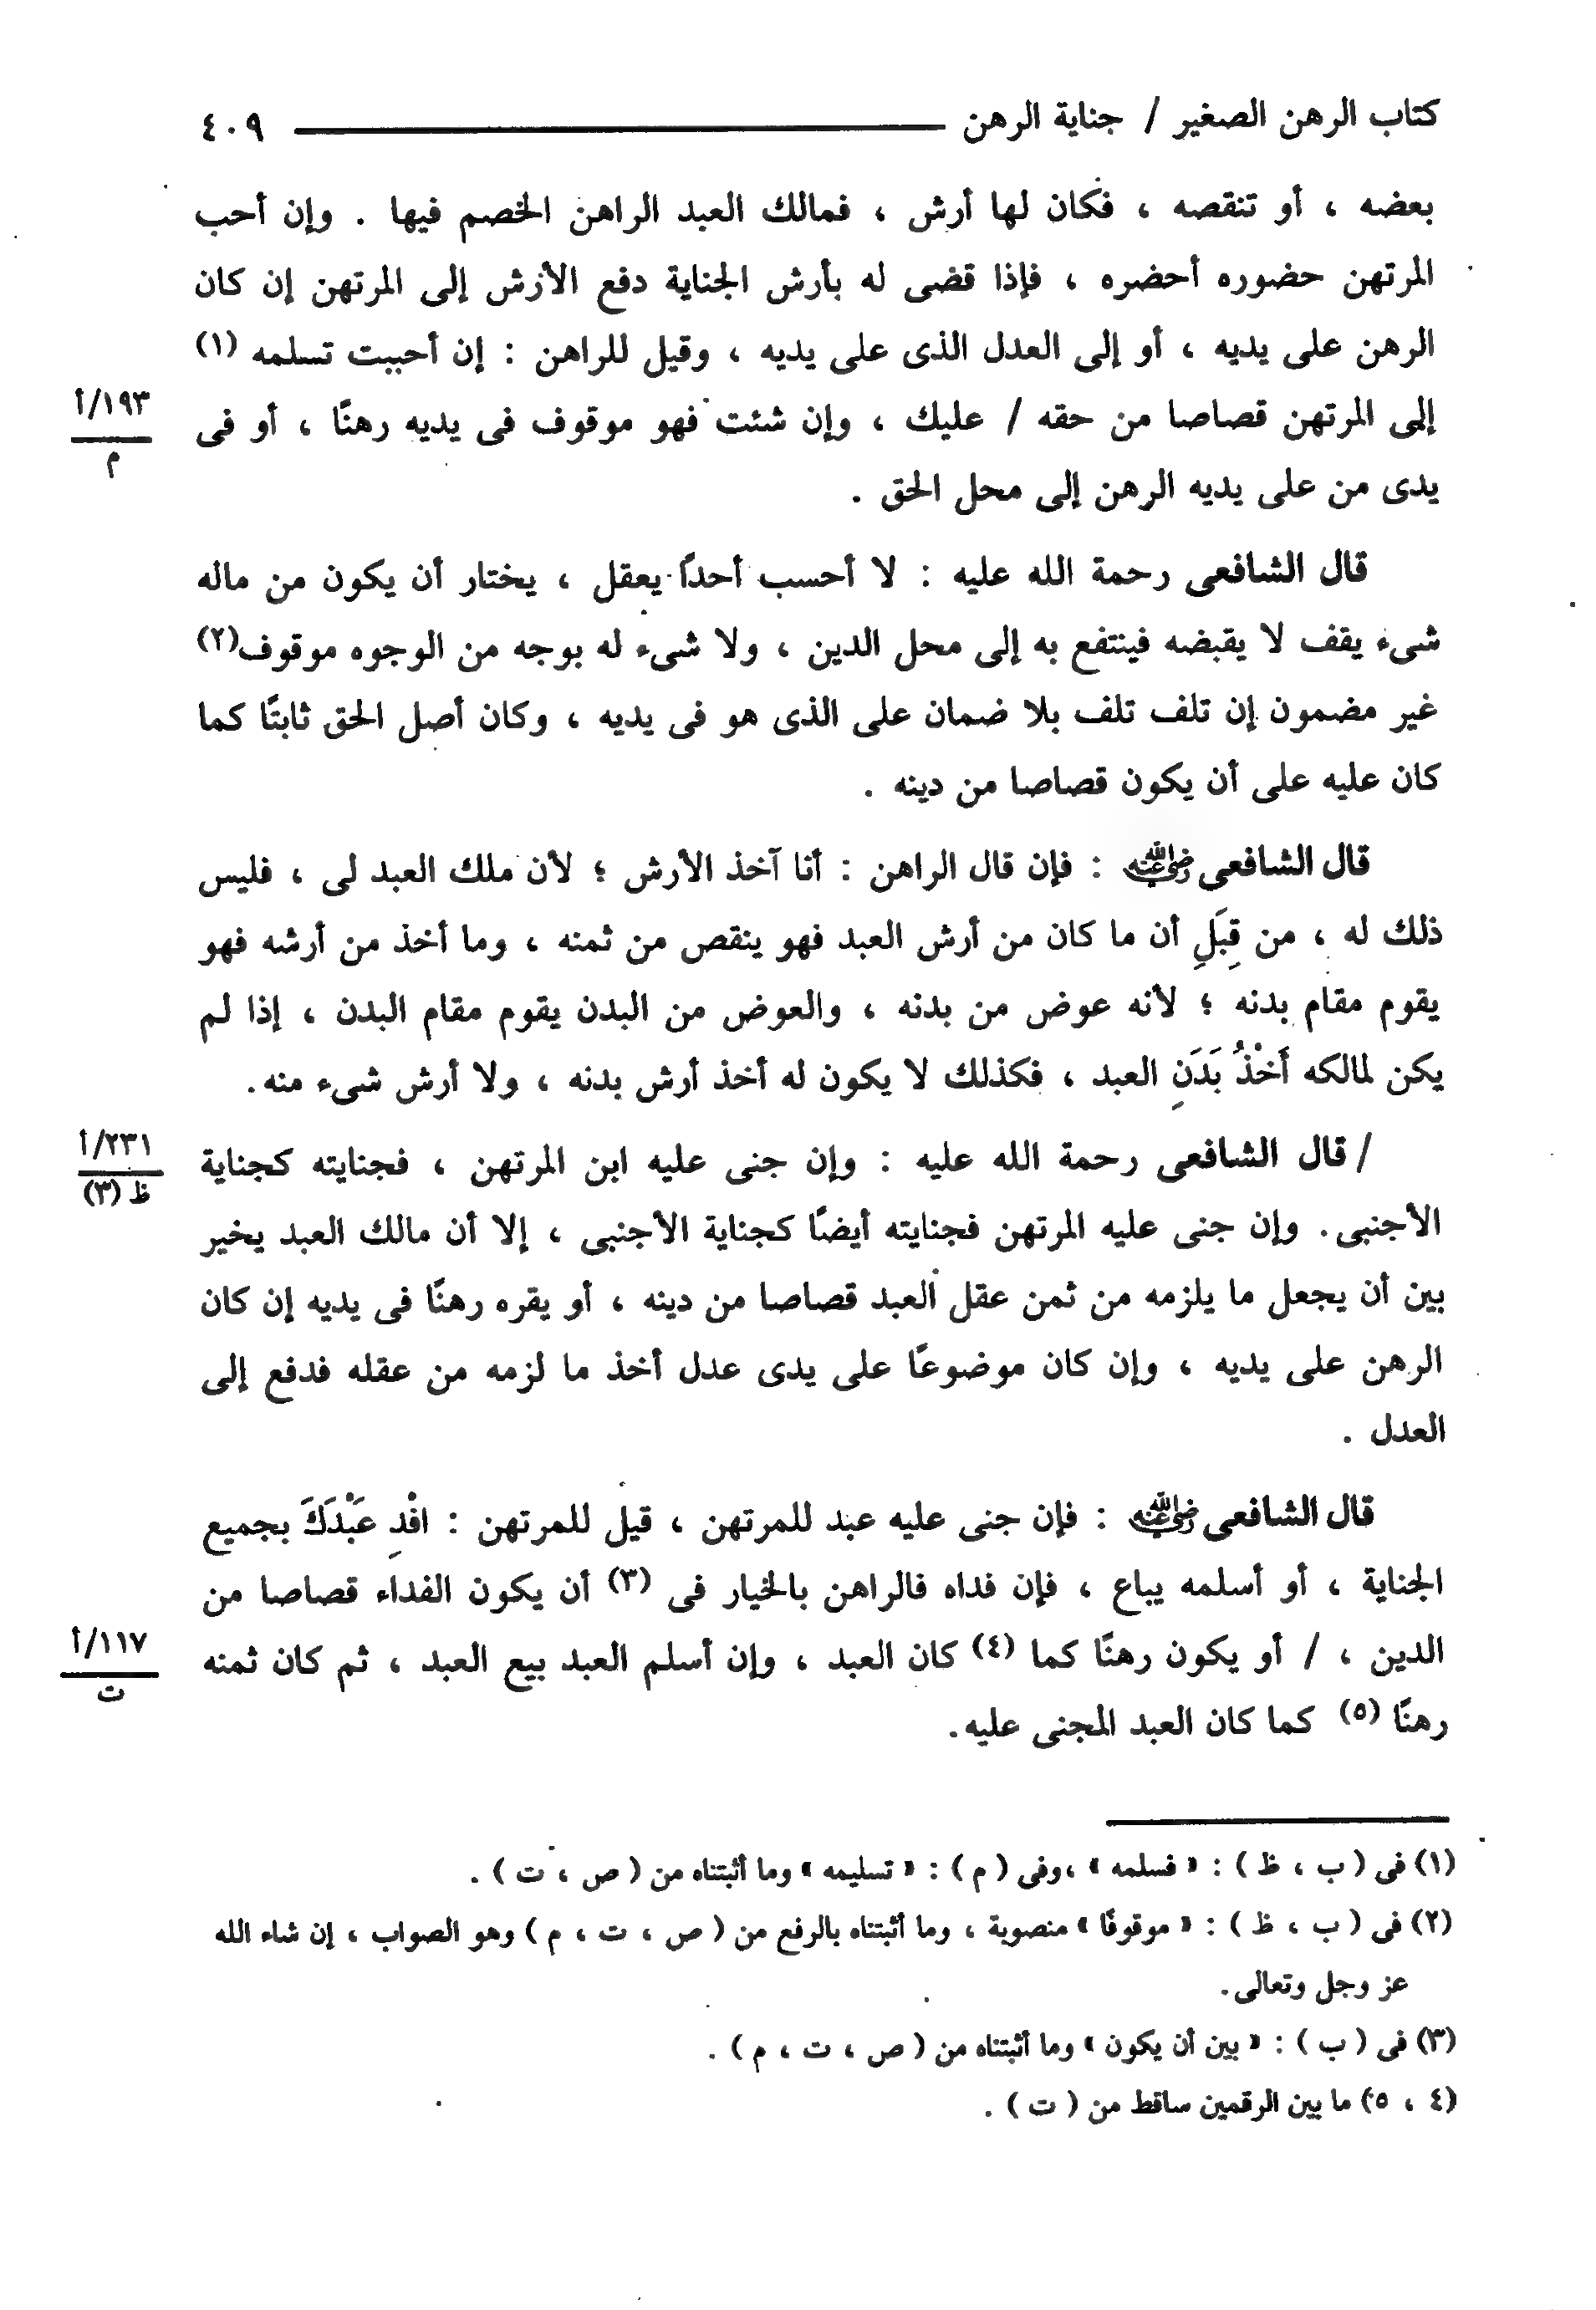 كتاب الرهن الصغير / جناية الرهن ٤٠٩
بعضه ، أو تنقصه ، فكان لها أرش ، فمالك العبد الراهن الخصم فيها . وإن أحب
المرتهن حضوره أحضره ، فإذا قضى له بأرش الجناية دفع الأرش إلى المرتهن إن كان
الرهن على يديه ، أو إلى العدل الذى على يديه ، وقيل للراهن : إن أحببت تسلمه (١)
إلى المرتهن قصاصا من حقه / عليك ، وإن شئت فهو موقوف فى يديه رهنًا ، أو فى
١٩٣/أ
م
يدى من على يديه الرهن إلى محل الحق .
قال الشافعى رحمة الله عليه : لا أحسب أحداً يعقل ، يختار أن يكون من ماله
شىء يقف لا يقبضه فينتفع به إلى محل الدين ، ولا شىء له بوجه من الوجوه موقوف(٢)
غير مضمون إن تلف تلف بلا ضمان على الذى هو فى يديه ، وكان أصل الحق ثابتًا كما
كان عليه على أن يكون قصاصا من دينه .
قال الشافعى رضي الله عنه : فإن قال الراهن : أنا آخذ الأرش ؛ لأن ملك العبد لى ، فليس
ذلك له ، من قِبَلِ أن ما كان من أرش العبد فهو ينقص من ثمنه ، وما أخذ من أرشه فهو
يقوم مقام بدنه ؛ لأنه عوض من بدنه ، والعوض من البدن يقوم مقام البدن ، إذا لم
يكن لمالكه أَخْذُ بَدَنِ العبد ، فكذلك لا يكون له أخذ أرش بدنه ، ولا أرش شىء منه.
/ قال الشافعى رحمة الله عليه : وإن جنى عليه ابن المرتهن ، فجنايته كجناية
٢٣١/أ
ظ (٣)
الأجنبى. وإن جنى عليه المرتهن فجنايته أيضًا كجناية الأجنبى ، إلا أن مالك العبد يخير
بين أن يجعل ما يلزمه من ثمن عقل العبد قصاصا من دينه ، أو يقره رهنًا فى يديه إن كان
الرهن على يديه ، وإن كان موضوعًا على يدى عدل أخذ ما لزمه من عقله فدفع إلى
العدل .
قال الشافعى رضي الله عنه : فإن جنى عليه عبد للمرتهن ، قيل للمرتهن : افْدِ عَبْدَكَ بجميع
الجناية ، أو أسلمه يباع ، فإن فداه فالراهن بالخيار فى (٣) أن يكون الفداء قصاصا من
الدين ، / أو يكون رهنًا كما (٤) كان العبد ، وإن أسلم العبد بيع العبد ، ثم كان ثمنه
١١٧/أ
ت
رهنًا (٥) كما كان العبد المجنى عليه.
(١) فى ( ب ، ظ ) : « فسلمه » ،وفى ( م ) : « تسليمه » وما أثبتناه من ( ص ، ت ) .
(٢) فى ( ب ، ظ ) : « موقوفًا » منصوبة ، وما أثبتناه بالرفع من ( ص ، ت ، م ) وهو الصواب ، إن شاء الله
عز وجل وتعالى.
(٣) فى ( ب ) : « بين أن يكون » وما أثبتناه من ( ص ، ت ، م ) .
(٤ ، ٥) ما بين الرقمين ساقط من ( ت ) .